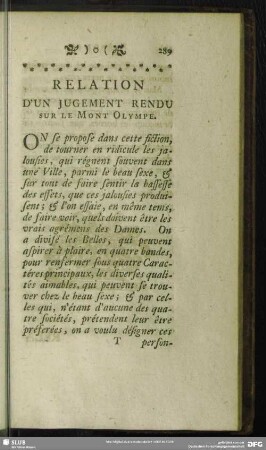 )o( 289
RELATION
D'UN JUGEMENT RENDU
SUR LE MONT OLYMPE.
ON se propose dans cette fiction,
de tourner en ridicule les ja-
lousies, qui régnent souvent dans
une Ville, parmi le beau sexe, &
sur tout de faire sentir la bassesse
des effets, que ces jalousies produi-
sent; & l'on essaie, en même tems,
de faire voir, quels doivent être les
vrais agrémens des Dames. On
a divisé les Belles, qui peuvent
aspirer à plaire, en quatre bandes,
pour renfermer sous quatre Carac-
téres principaux, les diverses quali-
tés aimables, qui peuvent se trou-
ver chez le beau sexe; & par cel-
les qui, n'étant d'aucune des qua-
tre sociétés, prétendent leur être
préferées, on a voulu désigner ces
T person-
SLUB
DFG